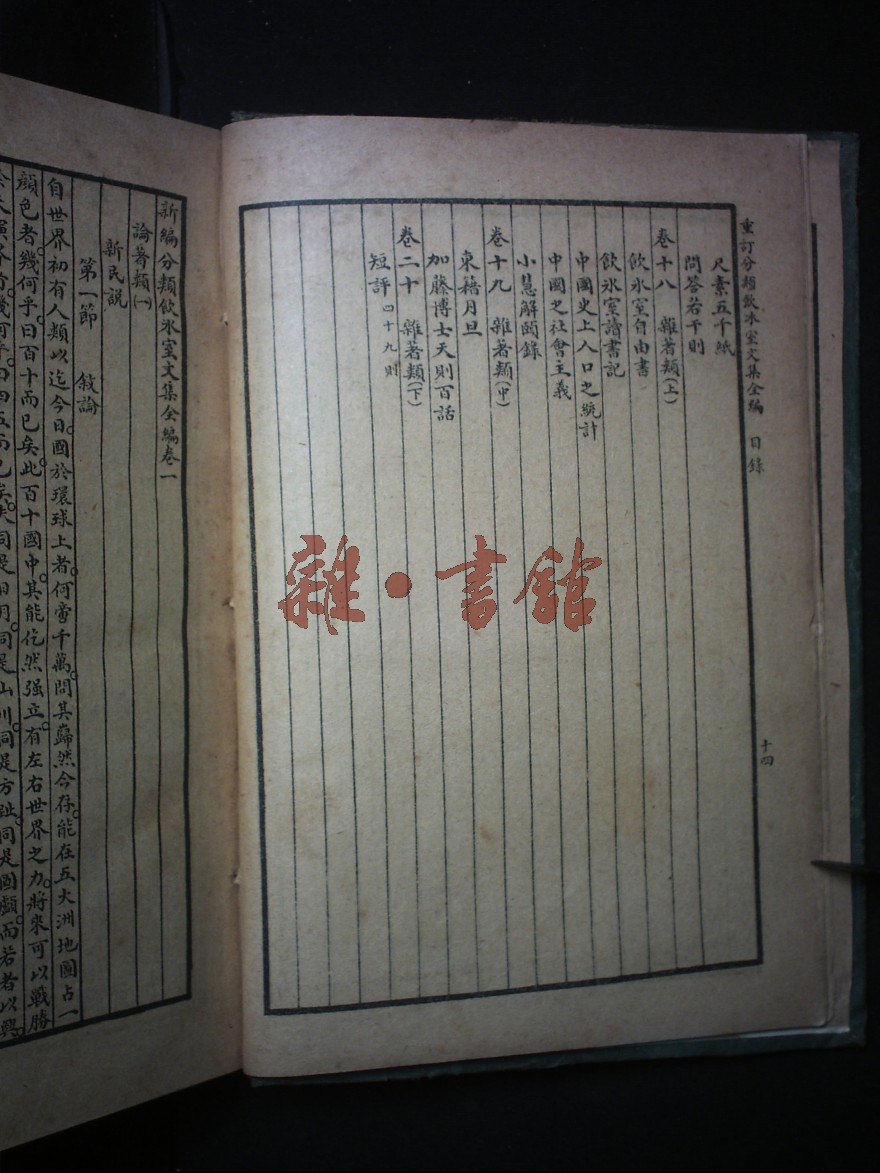 重訂分類飲冰室文集全編　目錄
尺素五千紙
問答若干則
卷十八　雜著類(上)
飲冰室自由書
飲冰室讀書記
中國史上人口之統計
中國之社會主義
小慧解頤錄
卷十九　雜著類(中)
東籍月旦
加藤博士天則百話
卷二十　雜著類(下)
短評四十九則
十四
雜·書館
新編分類飲冰室文集全編卷一
論著類(一)
新民說
第一節　敘論
自世界初有人類以迄今日。國於環球上者。何啻千萬。問其巋然今存。能在五大洲地圖占一
顏色者。幾何乎。曰百十而已矣。此百十國中。其能屹然强立。有左右世界之力。將來可以戰勝
同是日月。同是山川。同是方趾。同是圓顱。而若者以興